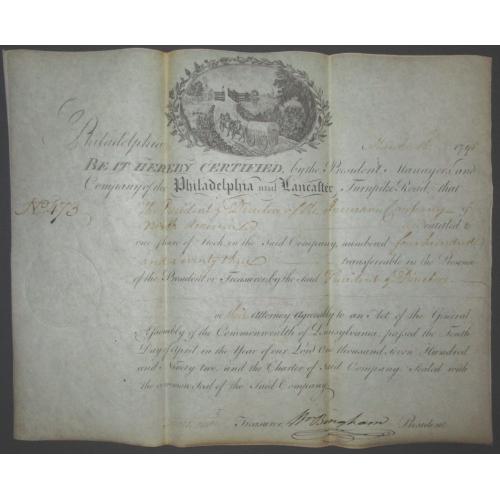 Philadelphia March 1795
BE IT HEREBY CERTIFIED, by the President, Managers and
Company of the Philadelphia and Lancaster Turnpike Road, that
No. 473
The President & Directors of the Insurance Company of
North America entitled to
one share of Stock in the Said Company, numbered four hundred
and seventy three transferable in the Presence
of the President or Treasurer by the Said President & Directors
or their Attorney Agreeably to an Act of the General
Assembly of the Commonwealth of Pennsylvania, passed the Tenth
Day of April, in the Year of our Lord One thousand seven Hundred
and Ninety two, and the Charter of Said Company. Sealed with
the common Seal of the Said Company.
Treasurer. Wm Bingham President.